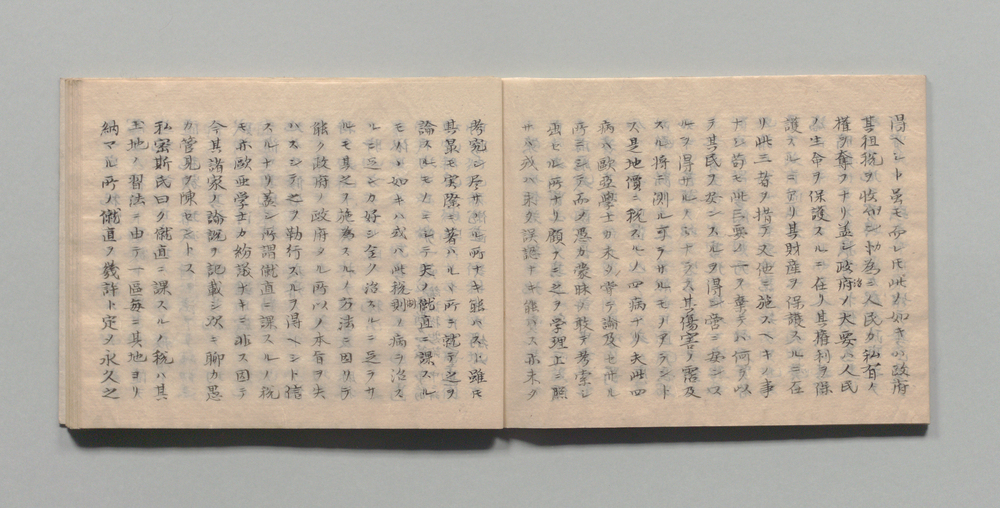 得ヘシト雖モ而レトモ此ノ如キハ政府
其租税ヲ收ムルノ為メニ人民カ私有ノ
權ヲ奪フナリ蓋シ政府ノ大要ハ人民
ノ生命ヲ保護スルニ在リ其權利ヲ保
護スルニ在リ其財産ヲ保護スルニ在
リ此三者ヲ措テ又他ニ施スヘキノ事
ナシ苟モ此三要ノ一ヲ棄テハ何ヲ以
テ其民ヲ安ンスルヲ得ン啻ニ安ンス
ルヲ得サルノミナラス其傷害ノ露及
スル將ニ測ル可ラサルモノアラントス
是地價ニ税スルノ四病ナリ夫此四
病ハ歐亞學士カ未タ嘗テ論及セサル
所ニシテ而メ愚カ蒙昧ヲ敢テ考索シ
出セル所ナリ顧テ之ヲ学理上ニ照
サハ或ハ未タ誤謬ナキ能ハス亦未タ
考究シ尽サヽル所ナキ能ハスト雖モ
其最モ実際ニ著ハルヽ所ニ就テ之ヲ
論スルモカニシテ夫ノ僦直ニ課スル
モノヽ如キハ或ハ此税則ノ病ヲ治ス
ルニ近シカ好シ全ク治スルニ足ラサ
ルモ其之ヲ施為スルノ方法ニ因リテ
能ク政府ノ政府タル所以ノ本旨ヲ失
ハスシテ之ヲ勒行スルヲ得ヘシト信
スルナリ蓋シ所謂僦直ニ課スルノ税
モ亦歐亜学士カ紛議ナキニ非ス因テ
今其諸家ノ論説ヲ記載シ次ニ聊カ愚
カ管見ヲ陳セントス
私密斯氏曰ク僦直ニ課スルノ税ハ其
土地ノ習法ニ由テ一區毎ニ其地ヨリ
納マル所ノ僦直ヲ幾許ト定メ永久之